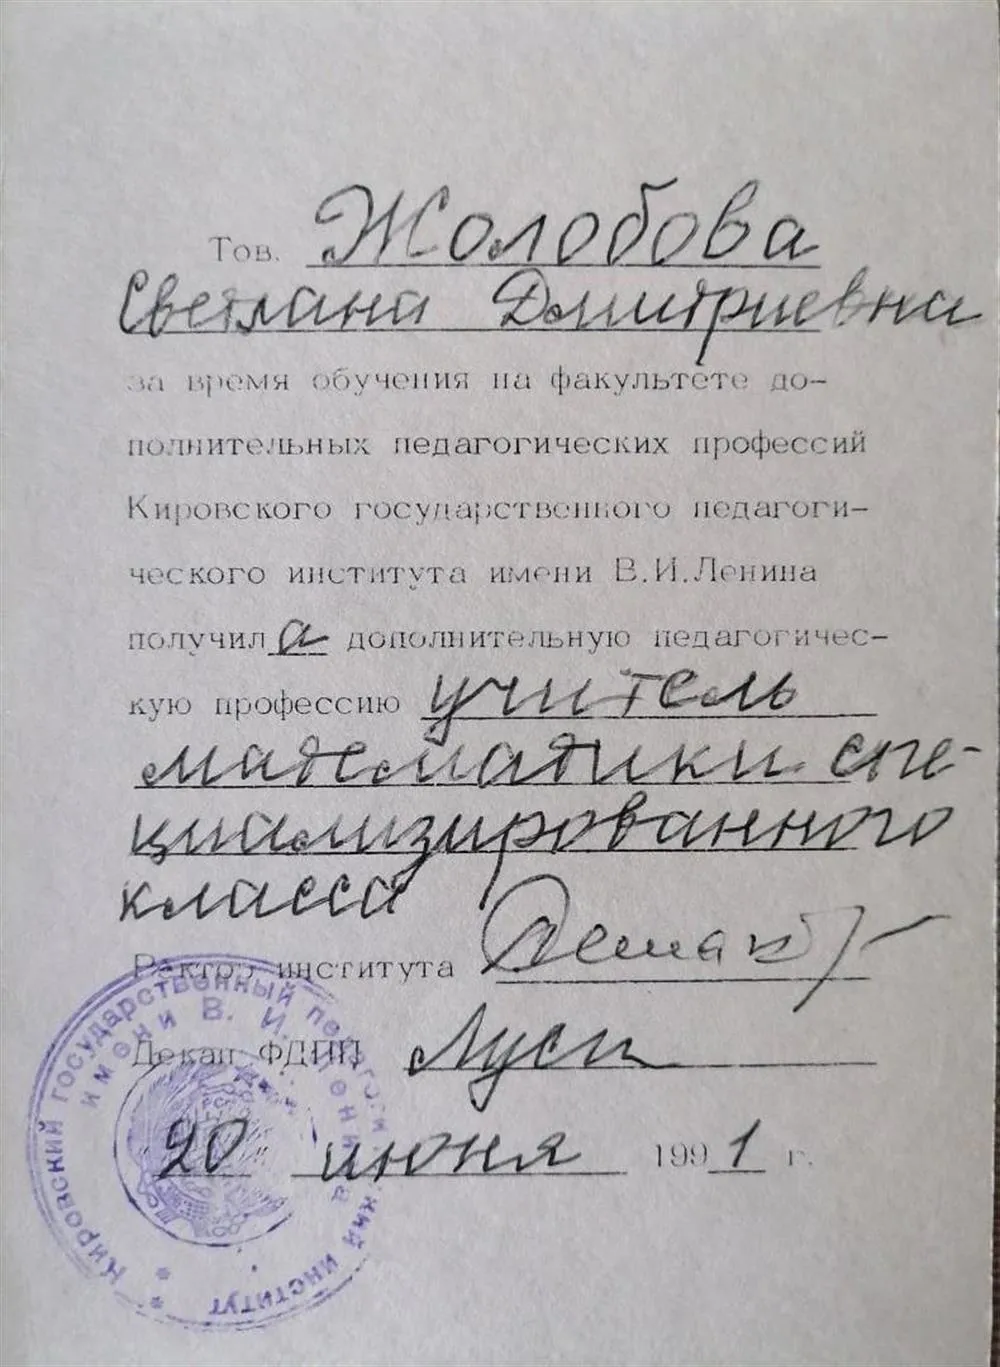 Тов. Жолобова
Светлана Дмитриевна
за время обучения на факультете до-
полнительных педагогических профессий
Кировского государственного педагоги-
ческого института имени В.И.Ленина
получил а дополнительную педагогичес-
кую профессию учитель
математики спе-
циализированного
класса
Ректор института
Декан ФДПП
20 июня 1991 г.
Кировский государственный педагогический институт
имени В. И. Ленина